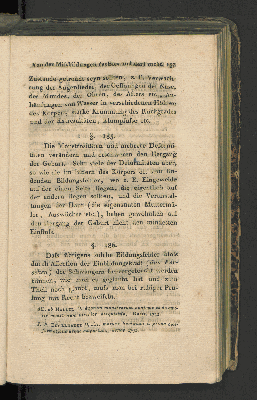 Von den Mißbildungen des Kindes und deren Ursach. 197
Zustande getrennt seyn sollten, z. E. Verwachsung
der Augenlieder, der Oeffnungen der Nase,
des Mundes, der Ohren, des Afters etc.,
Anhäufungen von Wasser in verschiedenen Höhlen
des Körpers, starke Krümmung des Rückgrades
und der Extremitäten, Klumpfüße etc.
§. 185.
Die Monstrositäten und mehrere Deformitäten
verändern und erschweren den Hergang
der Geburt. Sehr viele der Deformitäten aber,
so wie die im Innern des Körpers sich
findenden Bildungsfehler, wo z. E. Eingeweide
auf der einen Seite liegen, die eigentlich auf
der andern liegen sollten, und die Verunstaltungen
der Haut (die sogenannten Muttermäler,
Auswüchse etc.), haben gewöhnlich auf
den Hergang der Geburt nicht den mindesten
Einfluß.
§. 186.
Daß übrigens solche Bildungsfehler bloß
durch Affection der Einbildungskraft (das Versehen)
der Schwangern hervorgebracht werden
können, was man so geglaubt hat und zum
Theil noch glaubt, muß man bei ruhiger Prüfung
mit Recht bezweifeln.